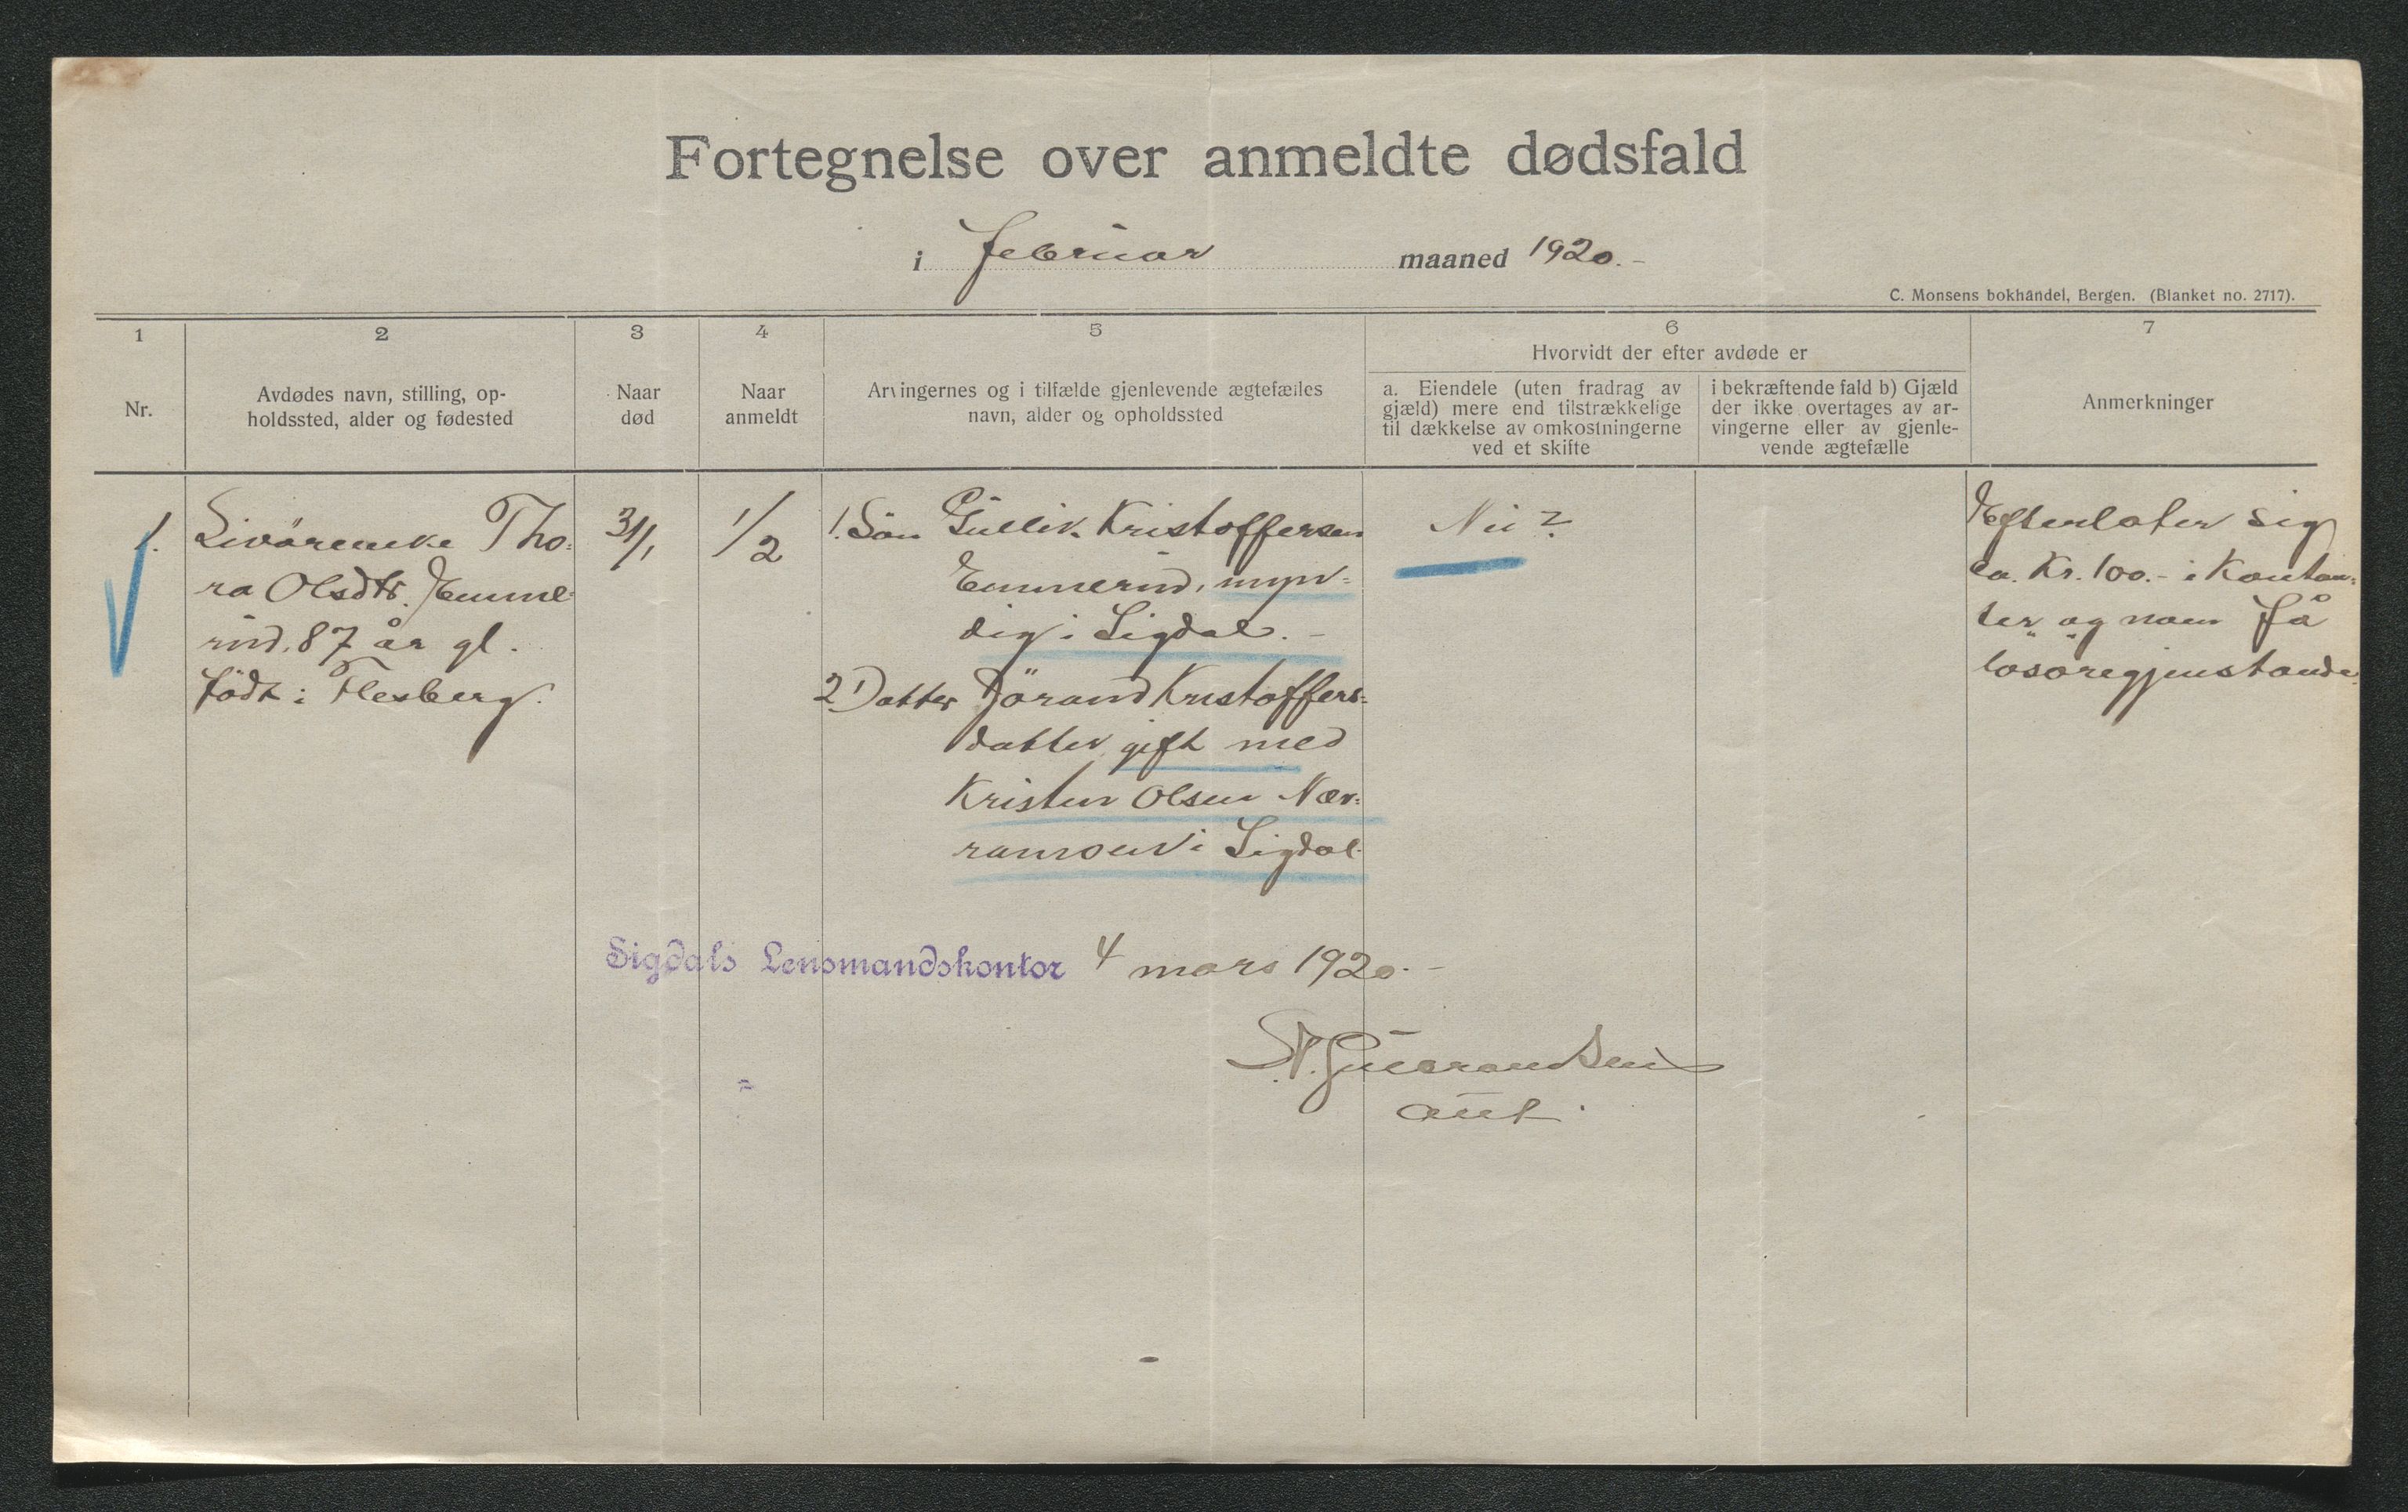 Fortegnelse over anmeldte dødsfald
i februar maaned 1920.-
C. Monsens bokhandel, Bergen. (Blanket no. 2717).
1
2
3
4
5
6
7
Nr.
Avdødes navn, stilling, op-
holdssted, alder og fødested
Naar
død
Naar
anmeldt
Arvingernes og i tilfælde gjenlevende ægtefælles
navn, alder og opholdssted
Hvorvidt der efter avdøde er
a. Eiendele (uten fradrag av
gjæld) mere end tilstrækkelige
til dækkelse av omkostningerne
ved et skifte
i bekræftende fald b) Gjæld
der ikke overtages av ar-
vingerne eller av gjenle-
vende ægtefælle
Anmerkninger
1.
Livörenke Tho=
ra Olsdtr. Emme=
rud, 87 år gl.
född i Flesberg.
31/1
1/2
1. Sön Gullik Kristoffersen
Emmerud, myn=
dig i Sigdal.-
2) Datter Jörand Kristoffers=
datter gift med
Kristen Olsen
i Sigdal.
Efterlater sig
ca. Kr. 100.- i Kontan=
ter og noen få
lösöregjenstande.
Sigdals Lensmandskontor 4 mars 1920.-
Gulbrandsen